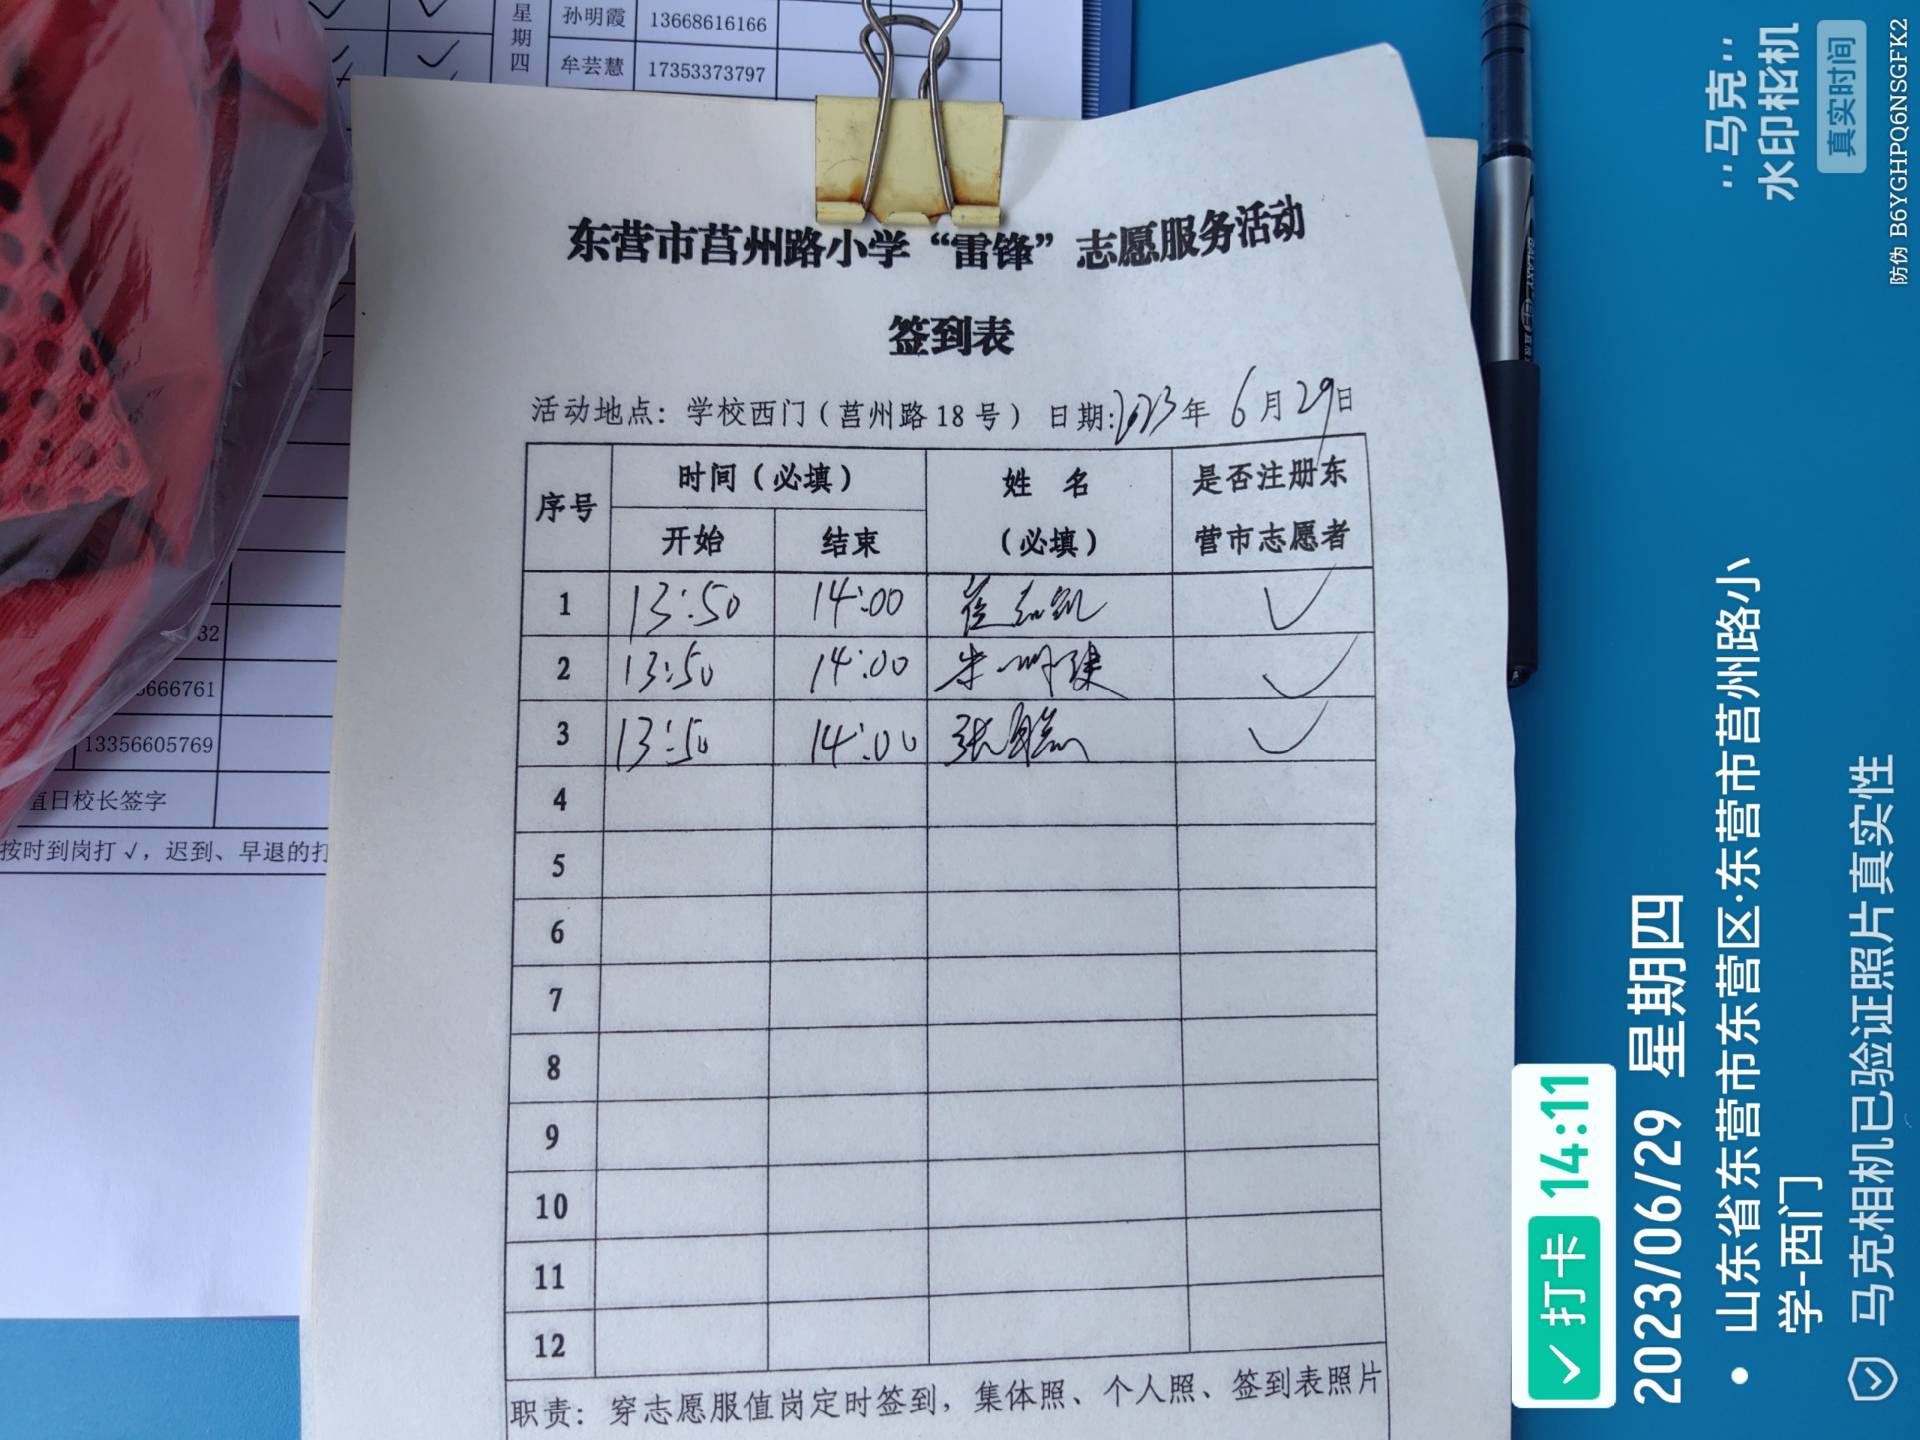 星期四
孙明霞 13668616166
牟芸慧 17353373797
东营市莒州路小学“雷锋”志愿服务活动
签到表
活动地点：学校西门（莒州路18号） 日期:2023年 6月29日
序号 时间（必填） 姓 名（必填） 是否注册东营市志愿者
开始 结束
1 13:50 14:00 ✓
2 13:50 14:00 ✓
3 13:50 14:00 张 ✓
4
5
6
7
8
9
10
11
12
职责：穿志愿服值岗定时签到，集体照、个人照、签到表照片
32
666761
13356605769
值日校长签字
按时到岗打√，迟到、早退的打
马克
水印相机
真实时间
防伪 B6YGHPQ6NSGFK2
打卡 14:11
2023/06/29 星期四
山东省东营市东营区·东营市莒州路小
学-西门
马克相机已验证照片真实性